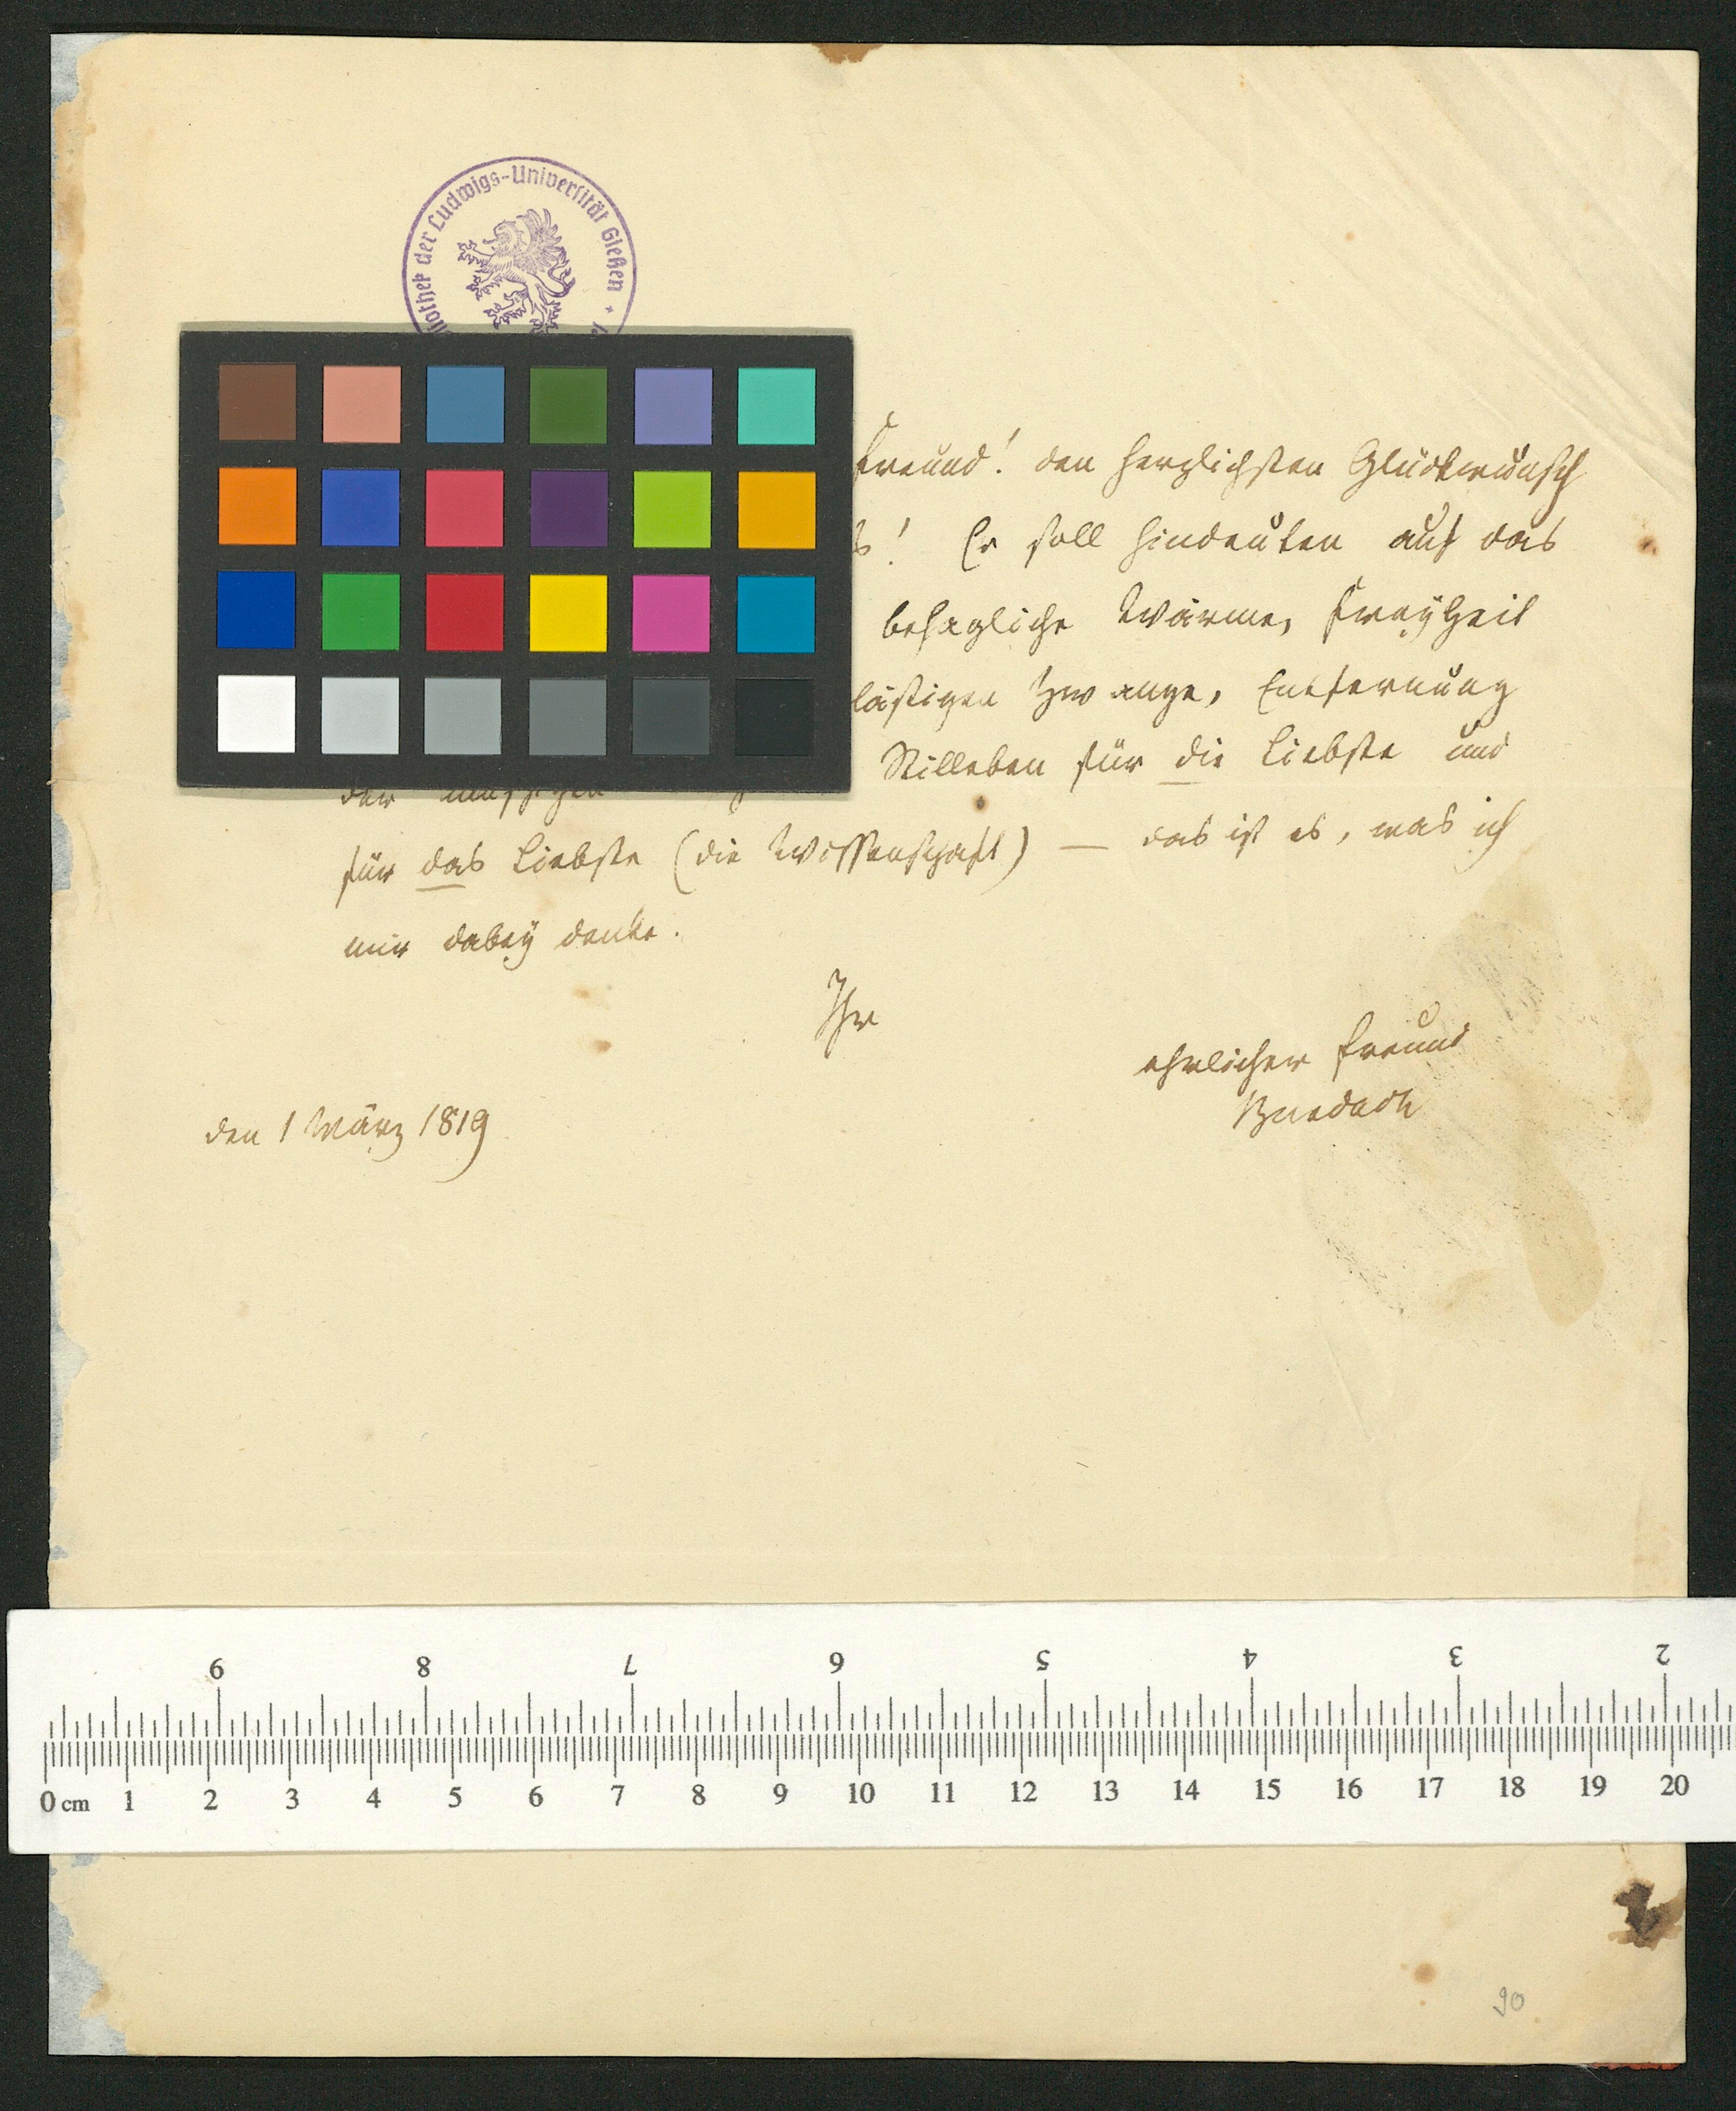 der Ludwigs-Universität Gießen
Freund! den herzlichsten Glückwunsch
s! Er soll hindeuten auf das
behagliche Wärme, Freyheit
lästigen Zwange, Entfernung
Stilleben für die Liebste und
der
für das Liebste (die Wissenschaft) — das ist es, was ich
mir dabey denke.
Ihr
ehrlicher Freund
Burdach
den 1 März 1819
9 8 7 6 5 4 3 2
0 cm 1 2 3 4 5 6 7 8 9 10 11 12 13 14 15 16 17 18 19 20
90